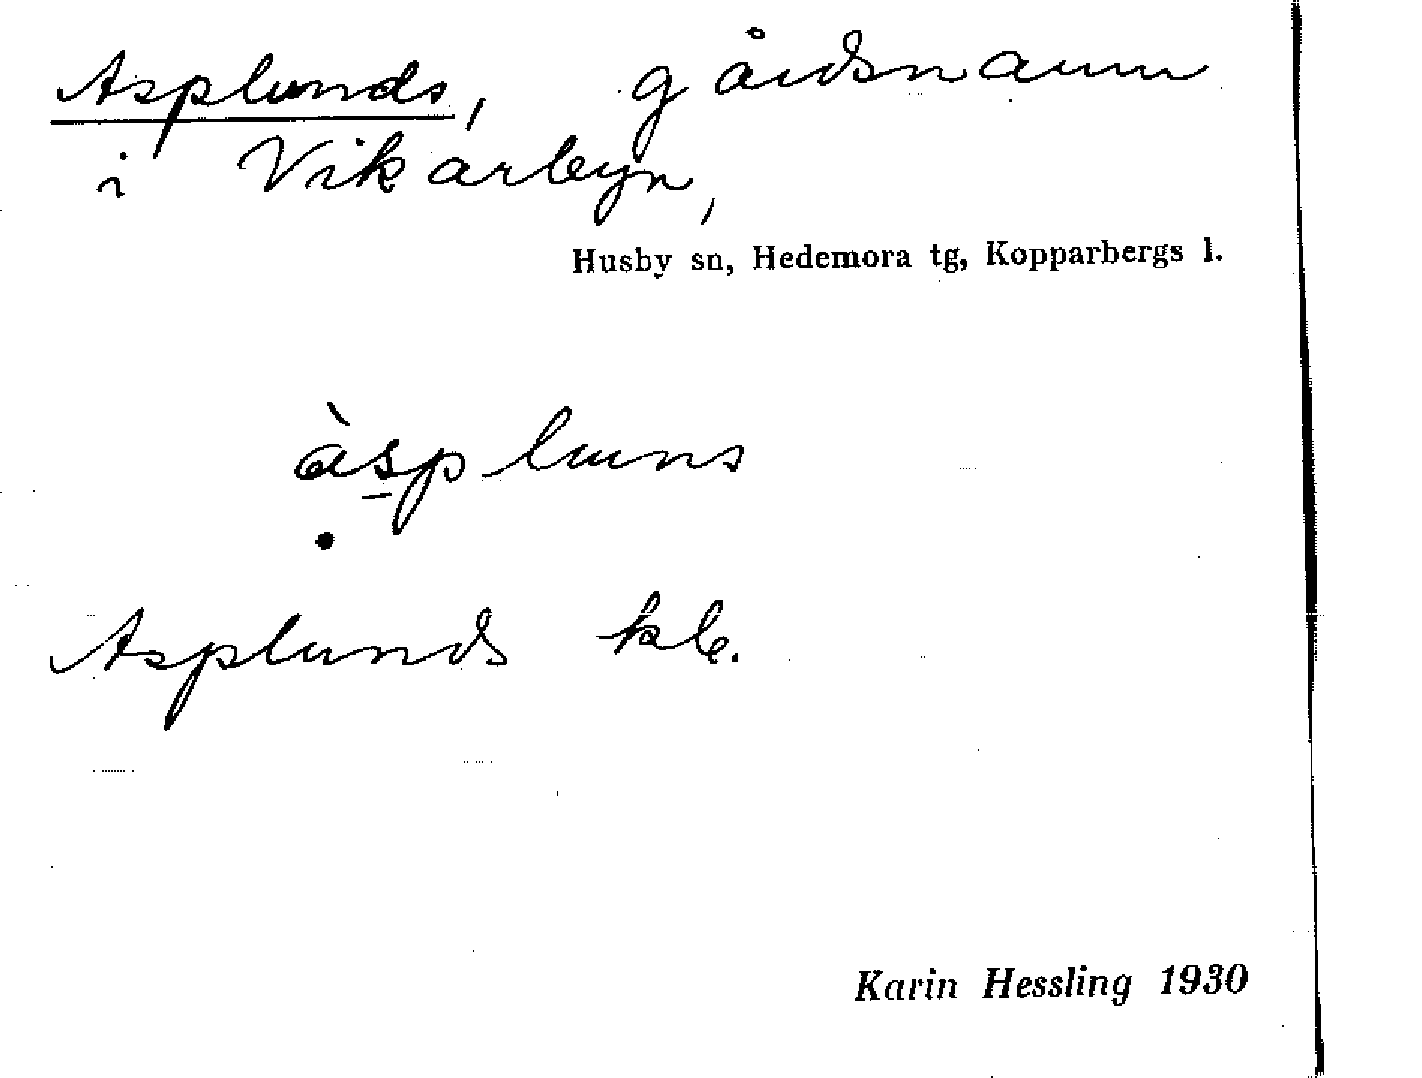 Asplunds, gårdsnamn
i Vikarbyn,
Husby sn, Hedemora tg, Kopparbergs l.
àspluns
Asplunds kb.
Karin Hessling 1930